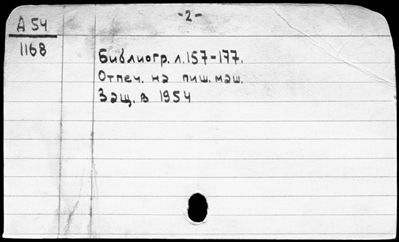 -2-
А 54
1168
Библиогр. л. 157-177.
Отпеч. на пиш. маш.
Защ. в 1954